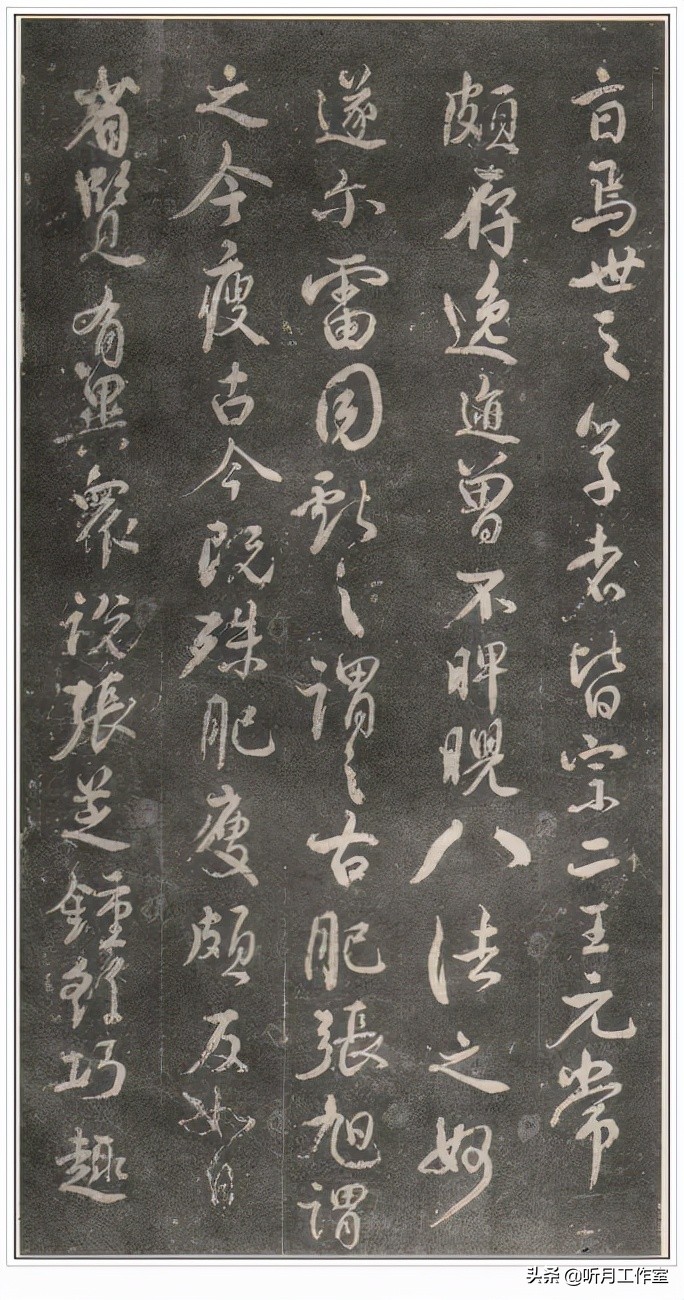 焉世之學者皆宗二王元常
頗存逸迹曾不睥睨八法之妙
遂尔雷同獻之謂之古肥張旭謂
之今瘦古今既殊肥瘦頗反如自
省覽有異衆說張芝鍾繇巧趣
头条 @听月工作室